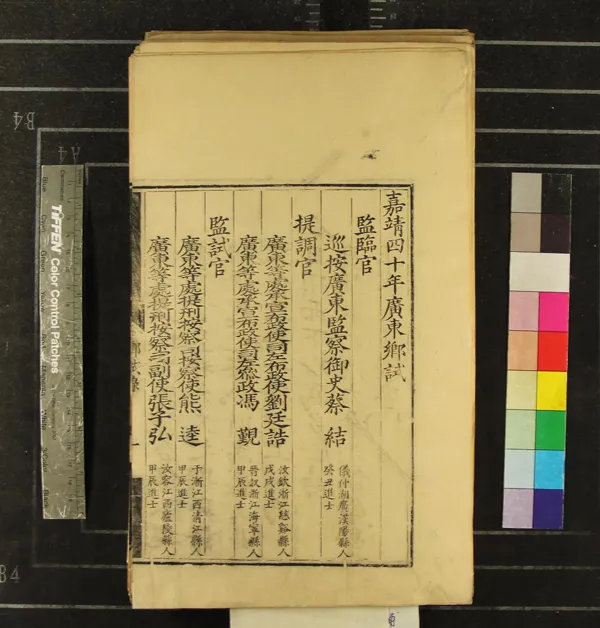 嘉靖四十年廣東鄉試
監臨官
巡按廣東監察御史蔡結
儀仲湖廣漢陽縣人
癸丑進士
提調官
廣東等處承宣布政使司左布政使劉廷誥
汝欽浙江慈谿縣人
戊戌進士
廣東等處承宣布政使司左叅政馮覲
晉叔浙江海寧縣人
甲辰進士
監試官
廣東等處提刑按察司按察使熊逵
于漸江西清江縣人
甲辰進士
廣東等處提刑按察司副使張子弘
汝容江西廬陵縣人
甲辰進士
TIFFEN Color Control Patches
A4
B4